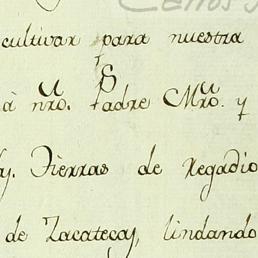 Carlos
cultivar para nuestra
à nro. Padre Mro. y
Tierras de Regadio
de Zacatecas, lindando